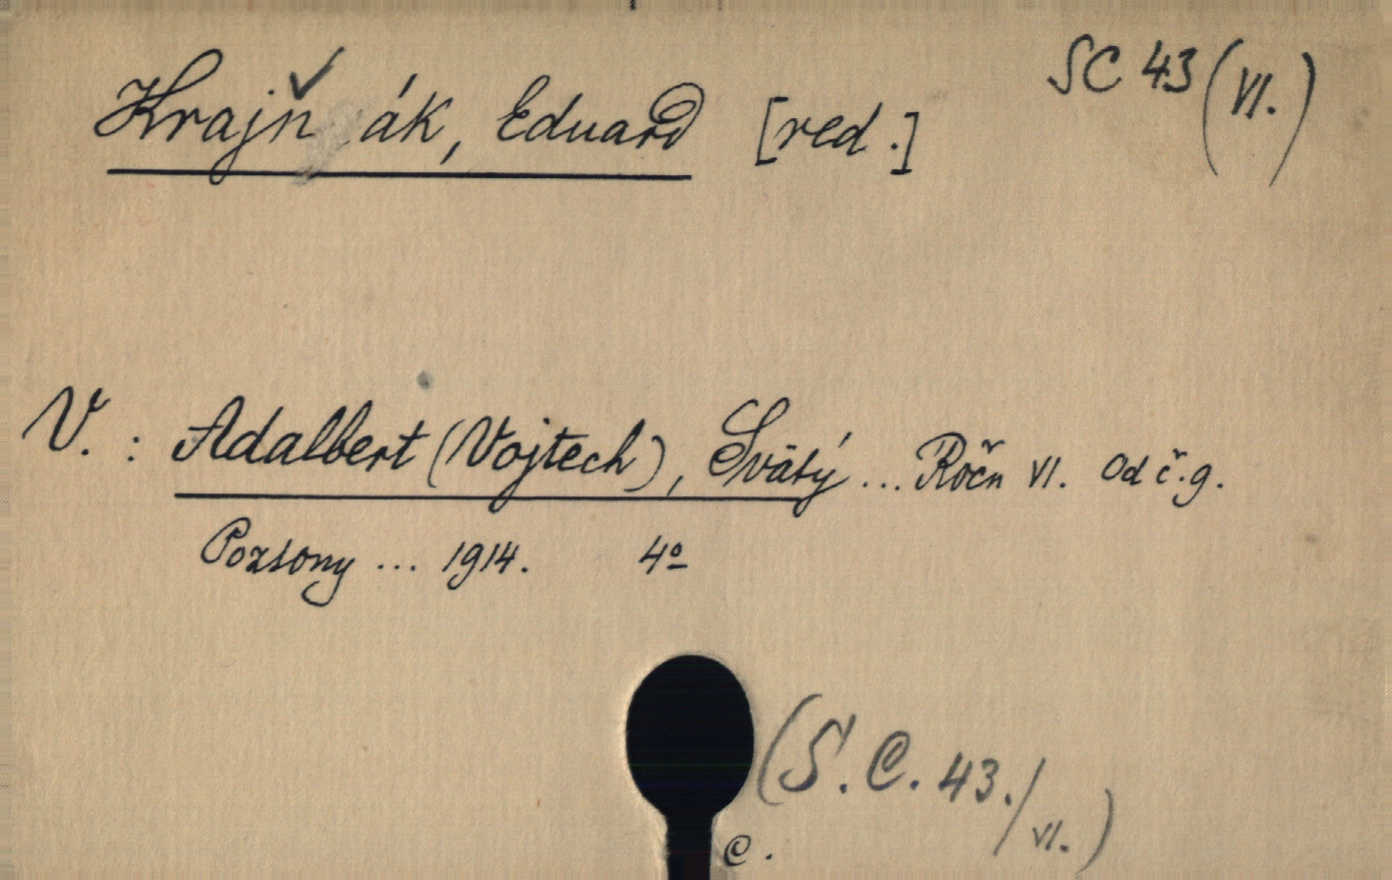 Krajňák, Eduard [red.] SC 43 (VI.)
V. : Adalbert (Vojtech), Svätý ... Ročn VI. Od č. 9.
Pozsony ... 1914. 4º
(S. C. 43./VI.)
C.